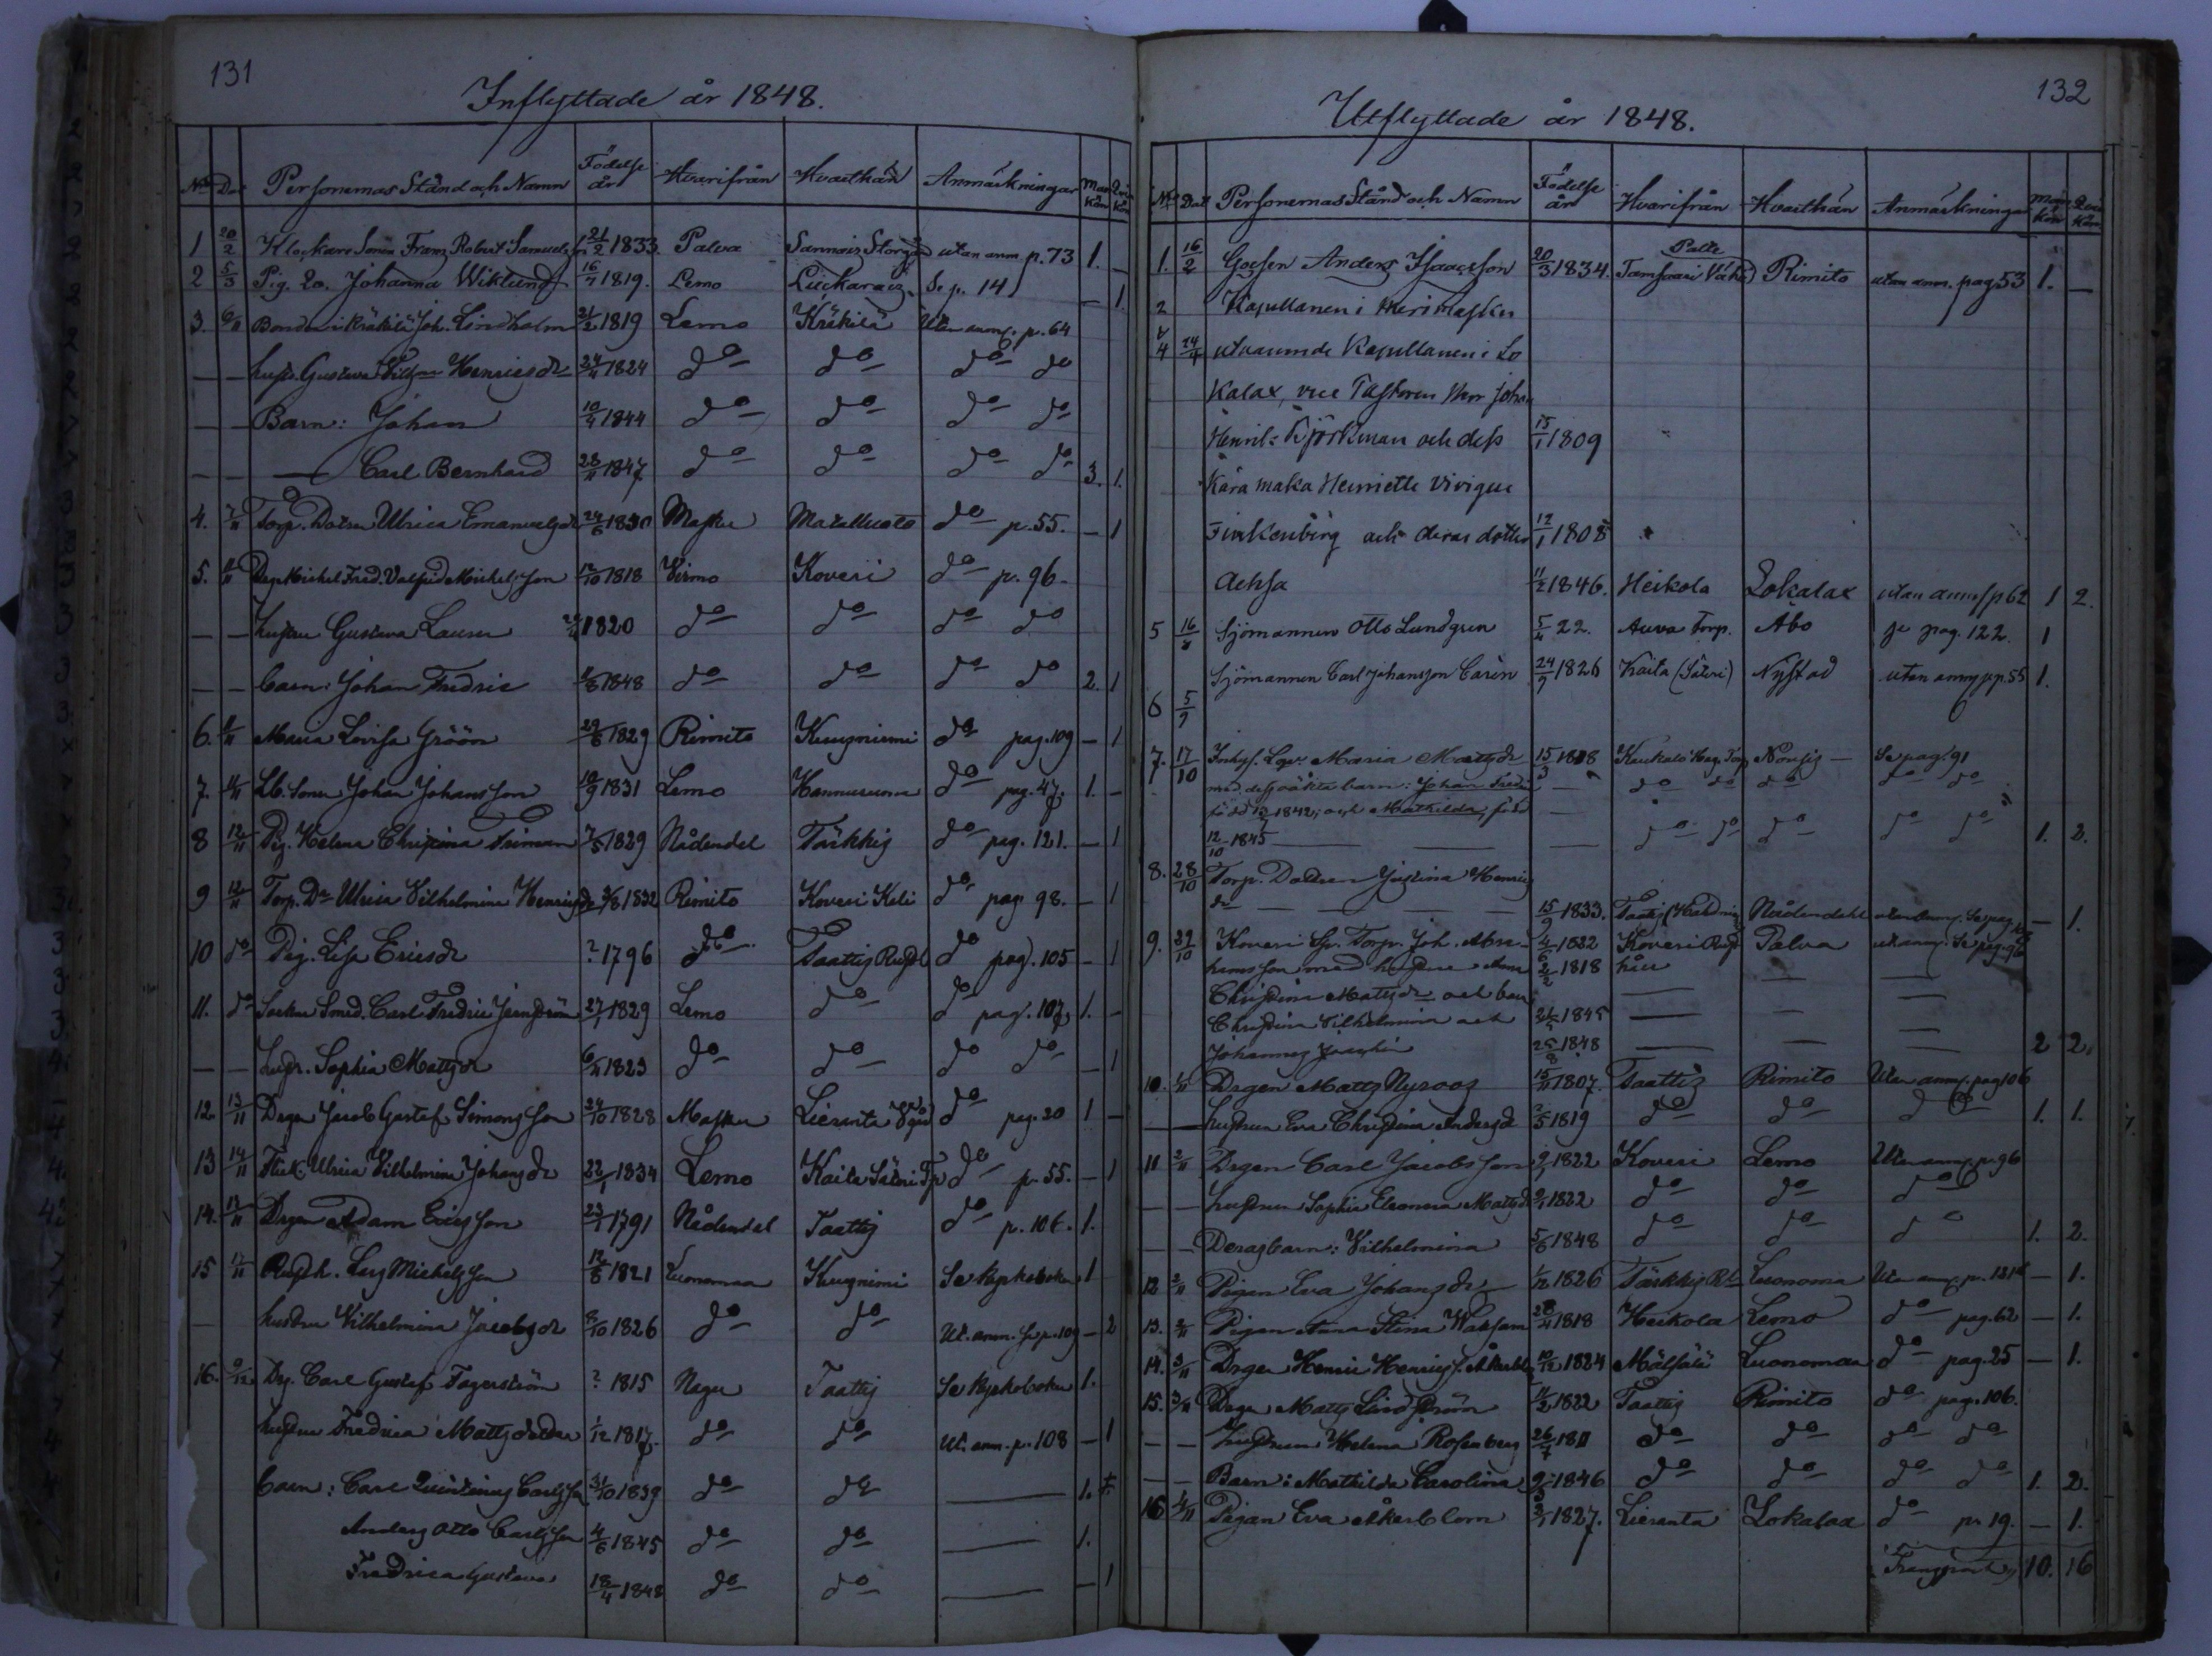 131
Inflyttade år 1848.
No Dat Personernas Stånd och Namn Födelse år Hvarifrån Hvarthän Anmärkningar Man kön Qvin kön
1 20/2 Klockare Sonen Franz Robert Samuelsson 21/2 1833. Palva Sannais Storgård utan anm p. 73 1. —
2 5/3 Pig. Lo. Johanna Wiklund 16/4 1819. Lemo Luckarais Se p. 14 — 1.
3. 6/11 Bonden i Kräkilä Joh. Lindholm 21/2 1819 Lemo Kräkilä Utan anm. p. 64
— — hust. Gustava Henricsdr 24/4 1824 do do do do
— — Barn: Johan 10/4 1844 do do do do
— — — Carl Bernhard 28/11 1847 do do do do 3. 1.
4. 7/11 Torp. Dotren Ulrica Emanuelsdr 24/6 1830 Masku do p. 55. — 1
5. 8/11 Michelsson 17/10 1818 Virmo Koveri do p. 96.
— — hustrun Gustava Lauren 1820 do do do do
— — barn: Johan Fredric 1848 do do do do 2. 1
6. 8/11 Maria Lovisa Gröön 29/6 1829 Rimito Kuusniemi do pag. 109 — 1
7. 11/11 Sonen Johan Johansson 10/9 1831 Lemo do pag. 47. 1. —
8 12/11 Pig. Helena Christina 7/5 1829 Nådendal Tärkkis do pag. 121. — 1
9 12/11 Torp. Dr Ulrica Vilhelmina Henricsdr 1832 Rimito Koveri do pag. 98. — 1
10 do Pig. Lisa Ericsdr ? 1796 do Taattis do pag. 105 — 1
11. do Smed. Carl Fredric 27/1 1829 Lemo do do pag. 107 1. —
— — hustr. Sophia Mattsdr 6/4 1823 do do do do — 1
12. 13/11 Drgen Jacob Gustaf Simonsson 24/10 1828 Masku Lieranta do pag. 20 1 —
13 14/11 Flick. Ulrica Vilhelmina Johansdr 22/1 1834 Lemo Kaita Säteri do p. 55. — 1
14. 13/11 Drgen Adam Ericsson 23/1 1791 Nådendal Taattis do p. 106. 1.
15 17/11 Lars Michelsson 12/8 1821 Luonomaa Kuusniemi Se Kyrkoboken 1
— hustru Vilhelmina Jacobsdr 8/10 1826 do do Ut. anm. Se p. 109 — 2
16. 9/12 Drg. Carl Gustaf Fagerström ? 1815 Nagu Taattis Se Kyrkoboken 1.
hustrun Fredrica Mattsdotter 1/12 1817. do do Ut. anm. p. 108 — 1
barn: Carl Carlsson 31/10 1839 do do — 1.
Anders Otto Carlsson 4/6 1845 do do — 1.
Fredrica Gustava 18/4 1848 do do — — 1
132
Utflyttade år 1848.
No Dat Personernas Stånd och Namn Födelse år Hvarifrån Hvarthän Anmärkningar Man kön Qvin kön
1. 16/2 Gossen Anders Isaacsson 20/3 1834. Rimito utan anm. pag 53 1. —
2 Kapellanen i Merimasku
4 24/4 utnämnde Kapellanen i Lo
Kalax, vice Pastoren Herr Johan
Henrik Björkman och dess 15/1 1809
kära maka Henriette
Finkenberg och deras dotter 12/1 1808
Achsa 11/2 1846. Heikola Lokalax utan anm. p 62 1 2.
5 16/8 Sjömannen Otto Lundgren 5/4 22. Auva Torp. Åbo se pag. 122. 1
6 5/9 Sjömannen Carl Johansson Carén 24/9 1826 Kaita (Säteri) Nystad utan anm p. 55 1.
7. 17/10 Inhys. Maria Mattsdr 15/3 1818 Nousis — Se pag. 91
med dess oäkta barn: Johan Fredric — do do do do do
född 1842; och Mathilda, född
12/10 1845 — — — do do do do do 1. 2.
8. 28/10 Torp. Dottren Justina Henrics
dr — — — — 15/9 1833. Taattis Nådendahl — 1.
9. 29/10 Koveri Torpr. Joh. Abra- 4/6 1822 Koveri Palva ut anm. Se pag. 96
hamsson med hustru Anna 2/2 1818
Christina Mattsdr och barn — — —
Christina Vilhelmina och 1845 — — —
Johannes Joachim 25/8 1848 — — — 2 2.
10. 1/11 Drgen Matts Nyroos 15/11 1807. Taattis Rimito Utan anm. pag 106
— hustrun Eva Christina Andersdr 1819 do do do 1. 1.
11 2/11 Drgen Carl Jacobsson 1822 Koveri Lemo Utan anm. p. 96
— — hustrun Sophia Eleonora Mattsdr 1822 do do do
— — Deras barn: Vilhelmina 5/6 1848 do do do 1. 2.
12 2/11 Pigan Eva Johansdr 1/12 1826 Tärkkis Luonoma Utan anm. p. — 1.
13. 2/11 Pigan Anna Stina 28/4 1818 Heikola Lemo do pag. 62 — 1.
14. 3/11 Drgen Henric Henrics. Åkerblom 10/12 1824 Luonomaa do pag. 25 — 1.
15. 3/11 Drgen Matts Lindström 11/2 1822 Taattis Rimito do pag. 106.
— — hustrun Helena Rosenberg 26/7 1811 do do do do
— — Barn: Mathilda Carolina 1846 do do do do 1. 2.
16 4/11 Pigan Eva Åkerblom 3/1 1827. Lieranta Lokalax do p. 19. — 1.
Transport 10. 16